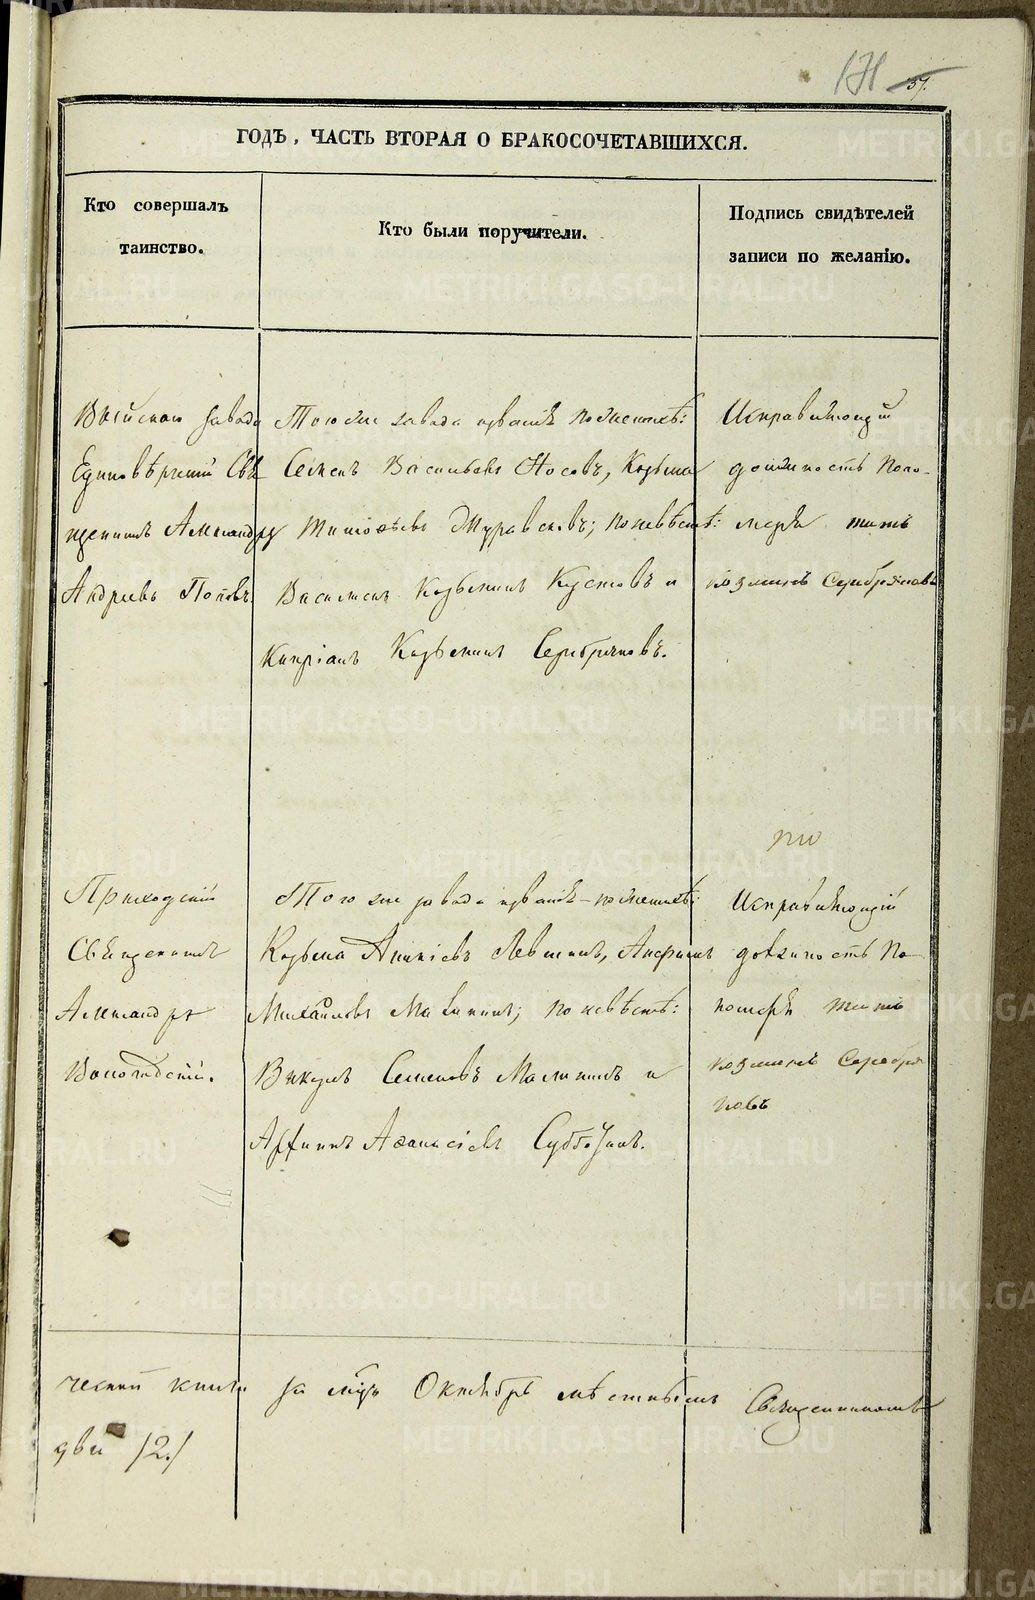 171 37.
ГОДЪ, ЧАСТЬ ВТОРАЯ О БРАКОСОЧЕТАВШИХСЯ.
Кто совершалъ
таинство.
Кто были поручители.
Подпись свидѣтелей
записи по желанію.
Выйскаго завода
Единовѣрческій Свя
щенникъ Александръ
Андреевъ Поповъ.
Того же завода по женихѣ:
Семенъ Васильевъ Носовъ, Козьма
по невѣстѣ:
Василій Козьминъ и
Кипріанъ Козьминъ Серебряковъ.
Исправляющій
должность Поно-
маря
Козминъ Серебряковъ
Приходскій
Священникъ
Александръ
Вологодскій.
Того же завода по женихѣ:
Козьма Аникіевъ Левшинъ,
Михайловъ Малининъ; по невѣстѣ:
Викулъ Семеновъ Малининъ и
Афанасіевъ Субботинъ.
Исправляющій
должность По
номаря
Козминъ Серебря
ковъ
ческой книги за мѣсяцъ Октябрь мѣстнымъ Священникомъ
два /2/
METRIKI.GASO-URAL.RU